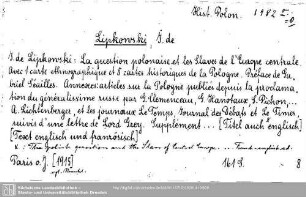 Hist. Polon. 1182
Lipkowski, J. de
J. de Lipkowski: La question polonaise et les Slaves de l'Europe centrale.
Avec 1 carte ethnographique et 8 cartes historiques de la Pologne. Préface de Ga-
briel Séailles. Annexes: articles sur la Pologne publiés depuis la proclama-
tion du généralissime russe par G. Clemenceau, G. Hanotaux, S. Pichon,
A. Lichtenberger, et les journaux Le Temps, Journal des Débats et Le Times,
suivis d'une lettre de Lord Grey. Supplément ... [Titel auch englisch]
[Text englisch und französisch]
The Polish question and the Slavs of Central Europe
Paris o. J. [1915] 161 S. 8